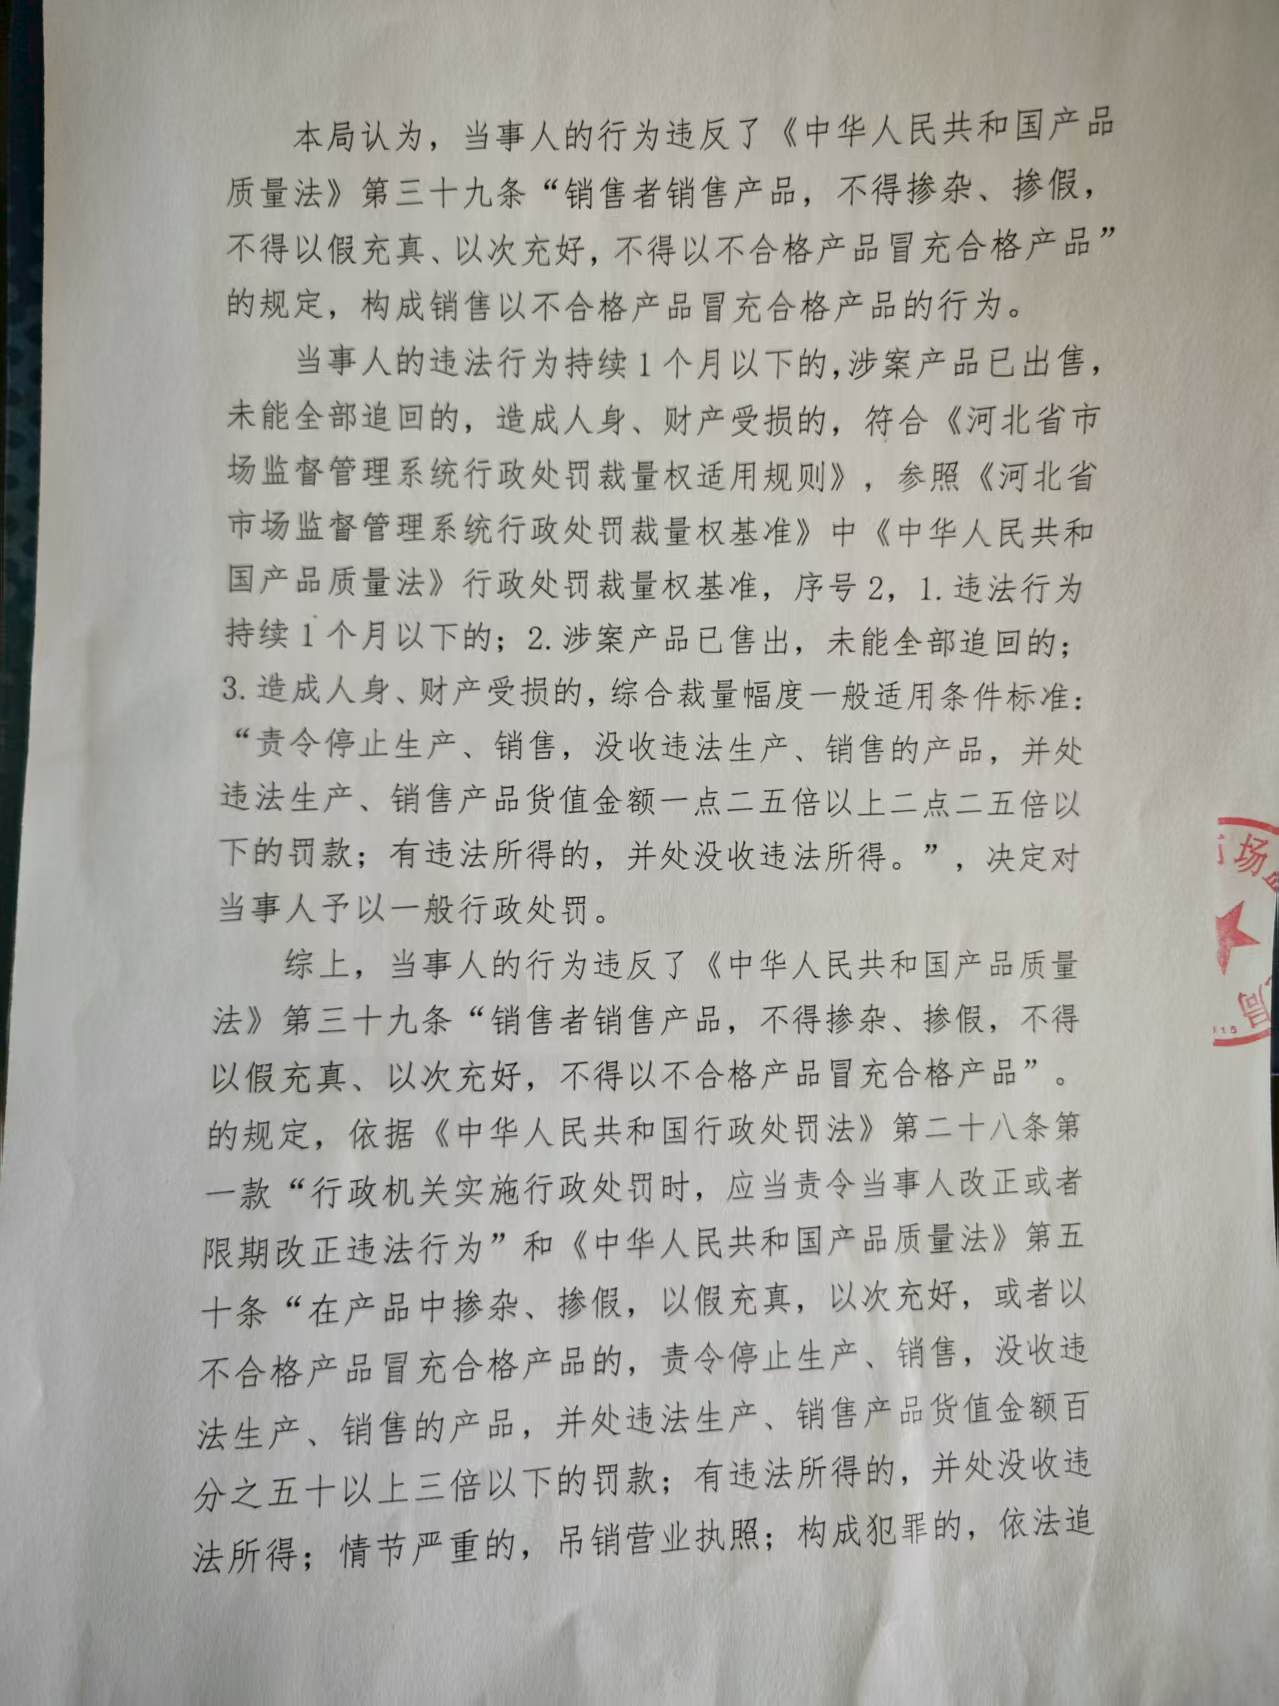 本局认为，当事人的行为违反了《中华人民共和国产品
质量法》第三十九条“销售者销售产品，不得掺杂、掺假，
不得以假充真、以次充好，不得以不合格产品冒充合格产品”
的规定，构成销售以不合格产品冒充合格产品的行为。
当事人的违法行为持续1个月以下的，涉案产品已出售，
未能全部追回的，造成人身、财产受损的，符合《河北省市
场监督管理系统行政处罚裁量权适用规则》，参照《河北省
市场监督管理系统行政处罚裁量权基准》中《中华人民共和
国产品质量法》行政处罚裁量权基准，序号2，1.违法行为
持续1个月以下的；2.涉案产品已售出，未能全部追回的；
3.造成人身、财产受损的，综合裁量幅度一般适用条件标准：
“责令停止生产、销售，没收违法生产、销售的产品，并处
违法生产、销售产品货值金额一点二五倍以上二点二五倍以
下的罚款；有违法所得的，并处没收违法所得。”，决定对
当事人予以一般行政处罚。
综上，当事人的行为违反了《中华人民共和国产品质量
法》第三十九条“销售者销售产品，不得掺杂、掺假，不得
以假充真、以次充好，不得以不合格产品冒充合格产品”。
的规定，依据《中华人民共和国行政处罚法》第二十八条第
一款“行政机关实施行政处罚时，应当责令当事人改正或者
限期改正违法行为”和《中华人民共和国产品质量法》第五
十条“在产品中掺杂、掺假，以假充真，以次充好，或者以
不合格产品冒充合格产品的，责令停止生产、销售，没收违
法生产、销售的产品，并处违法生产、销售产品货值金额百
分之五十以上三倍以下的罚款；有违法所得的，并处没收违
法所得；情节严重的，吊销营业执照；构成犯罪的，依法追
场
局